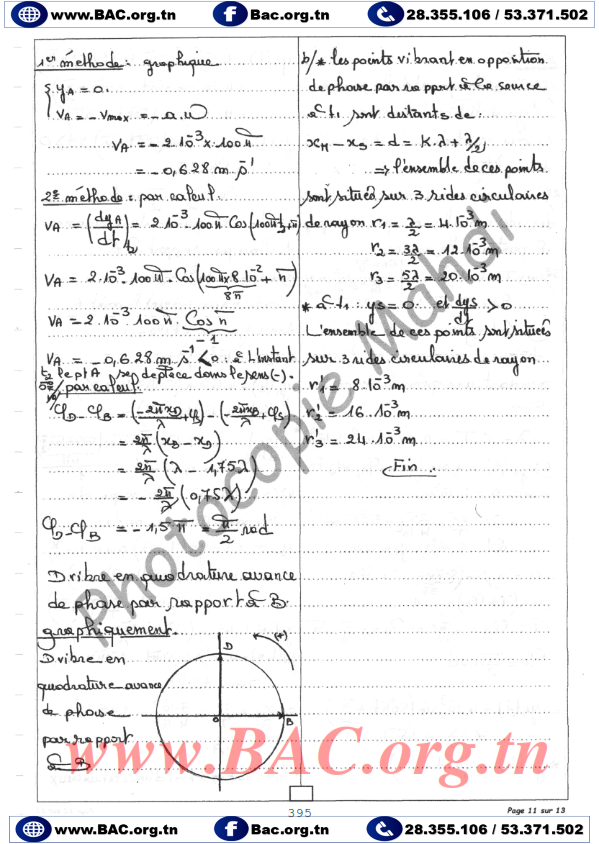 www.BAC.org.tn Bac.org.tn 28.355.106 / 53.371.502
1er méthode: graphique
{ yA = 0.
VA = -Vmax = -a.ω
VA = -2.10^-3 x 100π
= -0,628 m.s^-1
2e méthode: par calcul.
VA = (dyA/dt)t2 = 2.10^-3.100π cos(100πt2+π)
VA = 2.10^-3.100π.cos(100π x 8.10^-2 + π)
8π
VA = 2.10^-3.100π.cos π
-1
VA = -0,628 m.s^-1 < 0: à l'instant
t2 le pt A se déplace dans le sens (-).
par calcul:
φD-φB = (-2πxD/λ+φS)-(-2πxB/λ+φS)
= 2π/λ (xB - xD)
= 2π/λ (λ - 1,75λ)
= -2π/λ (0,75λ)
φD-φB = -1,5π = π/2 rad
D vibre en quadrature avance
de phase par rapport à B.
graphiquement.
D vibre en
quadrature avance
de phase
par rapport
à B
D
(+)
o
B
b/* les points vibrant en opposition
de phase par rapport à la source
à t1 sont distants de:
xM - xS = d = k.λ + λ/2
⇒ l'ensemble de ces points
sont situés sur 3 rides circulaires
de rayon r1 = λ/2 = 4.10^-3 m
r2 = 3λ/2 = 12.10^-3 m
r3 = 5λ/2 = 20.10^-3 m
* à t1: yS = 0 et dyS/dt > 0
L'ensemble de ces points sont situés
sur 3 rides circulaires de rayon
r'1 = 8.10^-3 m
r'2 = 16.10^-3 m
r'3 = 24.10^-3 m
Fin.
Photocopie Mahdi
www.BAC.org.tn
395
Page 11 sur 13
www.BAC.org.tn Bac.org.tn 28.355.106 / 53.371.502